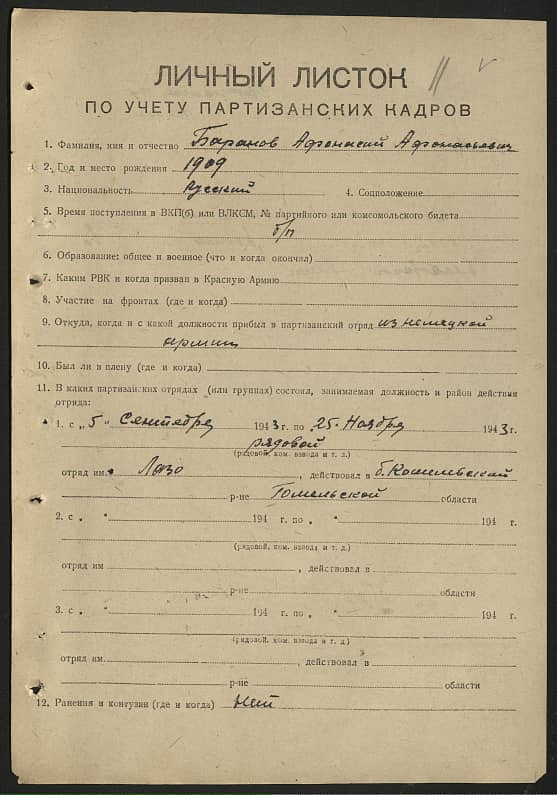 ЛИЧНЫЙ ЛИСТОК
ПО УЧЕТУ ПАРТИЗАНСКИХ КАДРОВ
1. Фамилия, имя и отчество Баранов Афанасий Афанасьевич
2. Год и место рождения 1909
3. Национальность Русский 4. Соцположение
5. Время поступления в ВКП(б) или ВЛКСМ, № партийного или комсомольского билета
б/п
6. Образование: общее и военное (что и когда окончил)
7. Каким РВК и когда призван в Красную Армию
8. Участие на фронтах (где и когда)
9. Откуда, когда и с какой должности прибыл в партизанский отряд из немецкой
армии
10. Был ли в плену (где и когда)
11. В каких партизанских отрядах (или группах) состоял, занимаемая должность и район действия
отряда:
1. с „5" Сентября 1943 г. по „25" Ноября 1943 г.
рядовой
(рядовой, ком. взвода и т. д.)
отряд им. Лазо, действовал в б. Кошелевский
р-не Гомельской области
2. с „ " 194 г. по „ " 194 г.
(рядовой, ком. взвода и т. д.)
отряд им , действовал в
р-не области
3. с „ " 194 г. по „ " 194 г.
(рядовой, ком. взвода и т. д.)
отряд им. , действовал в
р-не области
12. Ранения и контузии (где и когда) Нет